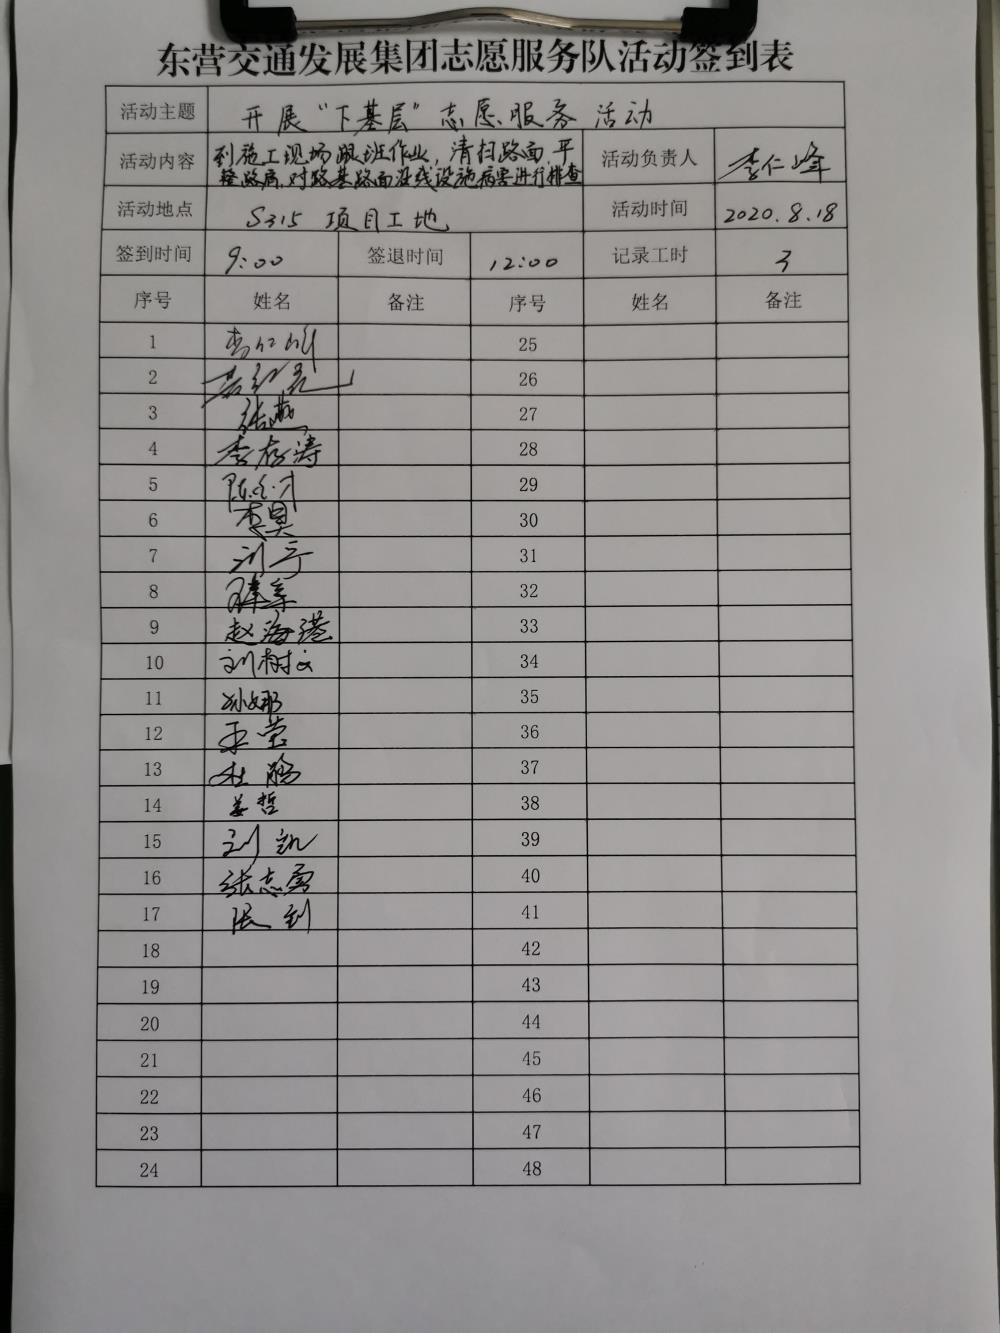 东营交通发展集团志愿服务队活动签到表
活动主题 开展“下基层”志愿服务活动
活动内容 到施工现场跟班作业，清扫路面，平 活动负责人 李仁峰
路肩，对路基路面沿线设施病害进行排查
活动地点 S315 项目工地 活动时间 2020.8.18
签到时间 9:00 签退时间 12:00 记录工时 3
序号 姓名 备注 序号 姓名 备注
1 李仁峰 25
2 26
3 张燕 27
4 李存涛 28
5 29
6 李昊 30
7 刘宁 31
8 32
9 赵海港 33
10 刘树文 34
11 孙娜 35
12 王莹 36
13 杜鹃 37
14 姜哲 38
15 刘凯 39
16 张志勇 40
17 张钊 41
18 42
19 43
20 44
21 45
22 46
23 47
24 48